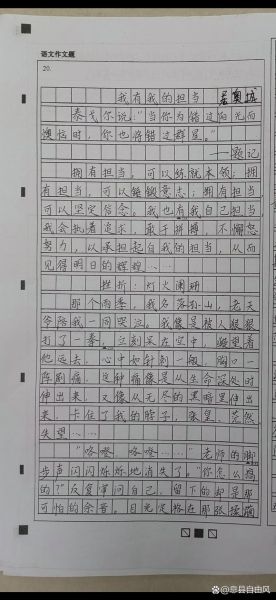 语文作文题
20.
我有我的担当
泰戈尔说："当你为错过阳光而
懊恼时，你也将错过群星。"
——题记
拥有担当，可以练就本领，拥
有担当，可以锤锻意志；拥有担当，
可以坚定信念。我也有我自己担当，
我会执着追求，敢于拼搏，不懈怠
努力，以承担起自我的担当，从而
见得明日的辉煌……
挫折·灯火阑珊
那个雨季，我名落孙山，老天
爷陪我一同哭泣。我像是被人狠狠
打了一拳。立刻呆在空中，凝望着
他远去，心中如针刺一般，胸口一
阵剧痛，这种痛像是从生命深处时
伸出来，又像从无尽的黑暗里伸出
来，卡住了我的脖子，张皇，茫然
失望……
"咚咚，咚咚……"老师的脚
步声闪闪烁烁地消失了。"你怎么搞
的？"反复审问自己，留下的却是那
可怕的余音。目光定格在那张揉
@息县自由风